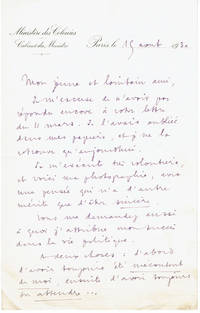 Ministère des Colonies
Cabinet du Ministre
Paris le 15 août 1930
Mon jeune et lointain ami,
Je m'excuse de n'avoir pas
répondu encore à votre lettre
du 11 mars. Je l'avais oubliée
dans mes papiers, et je ne la
retrouve qu'aujourd'hui.
Je m'exécute très volontiers,
et voici ma photographie, avec
une pensée qui n'a d'autre
mérite que d'être sincère.
Vous me demandez aussi
à quoi j'attribue mon succès
dans la vie politique.
A deux choses : d'abord
d'avoir toujours été mécontent
de moi, ensuite d'avoir toujours
su attendre...